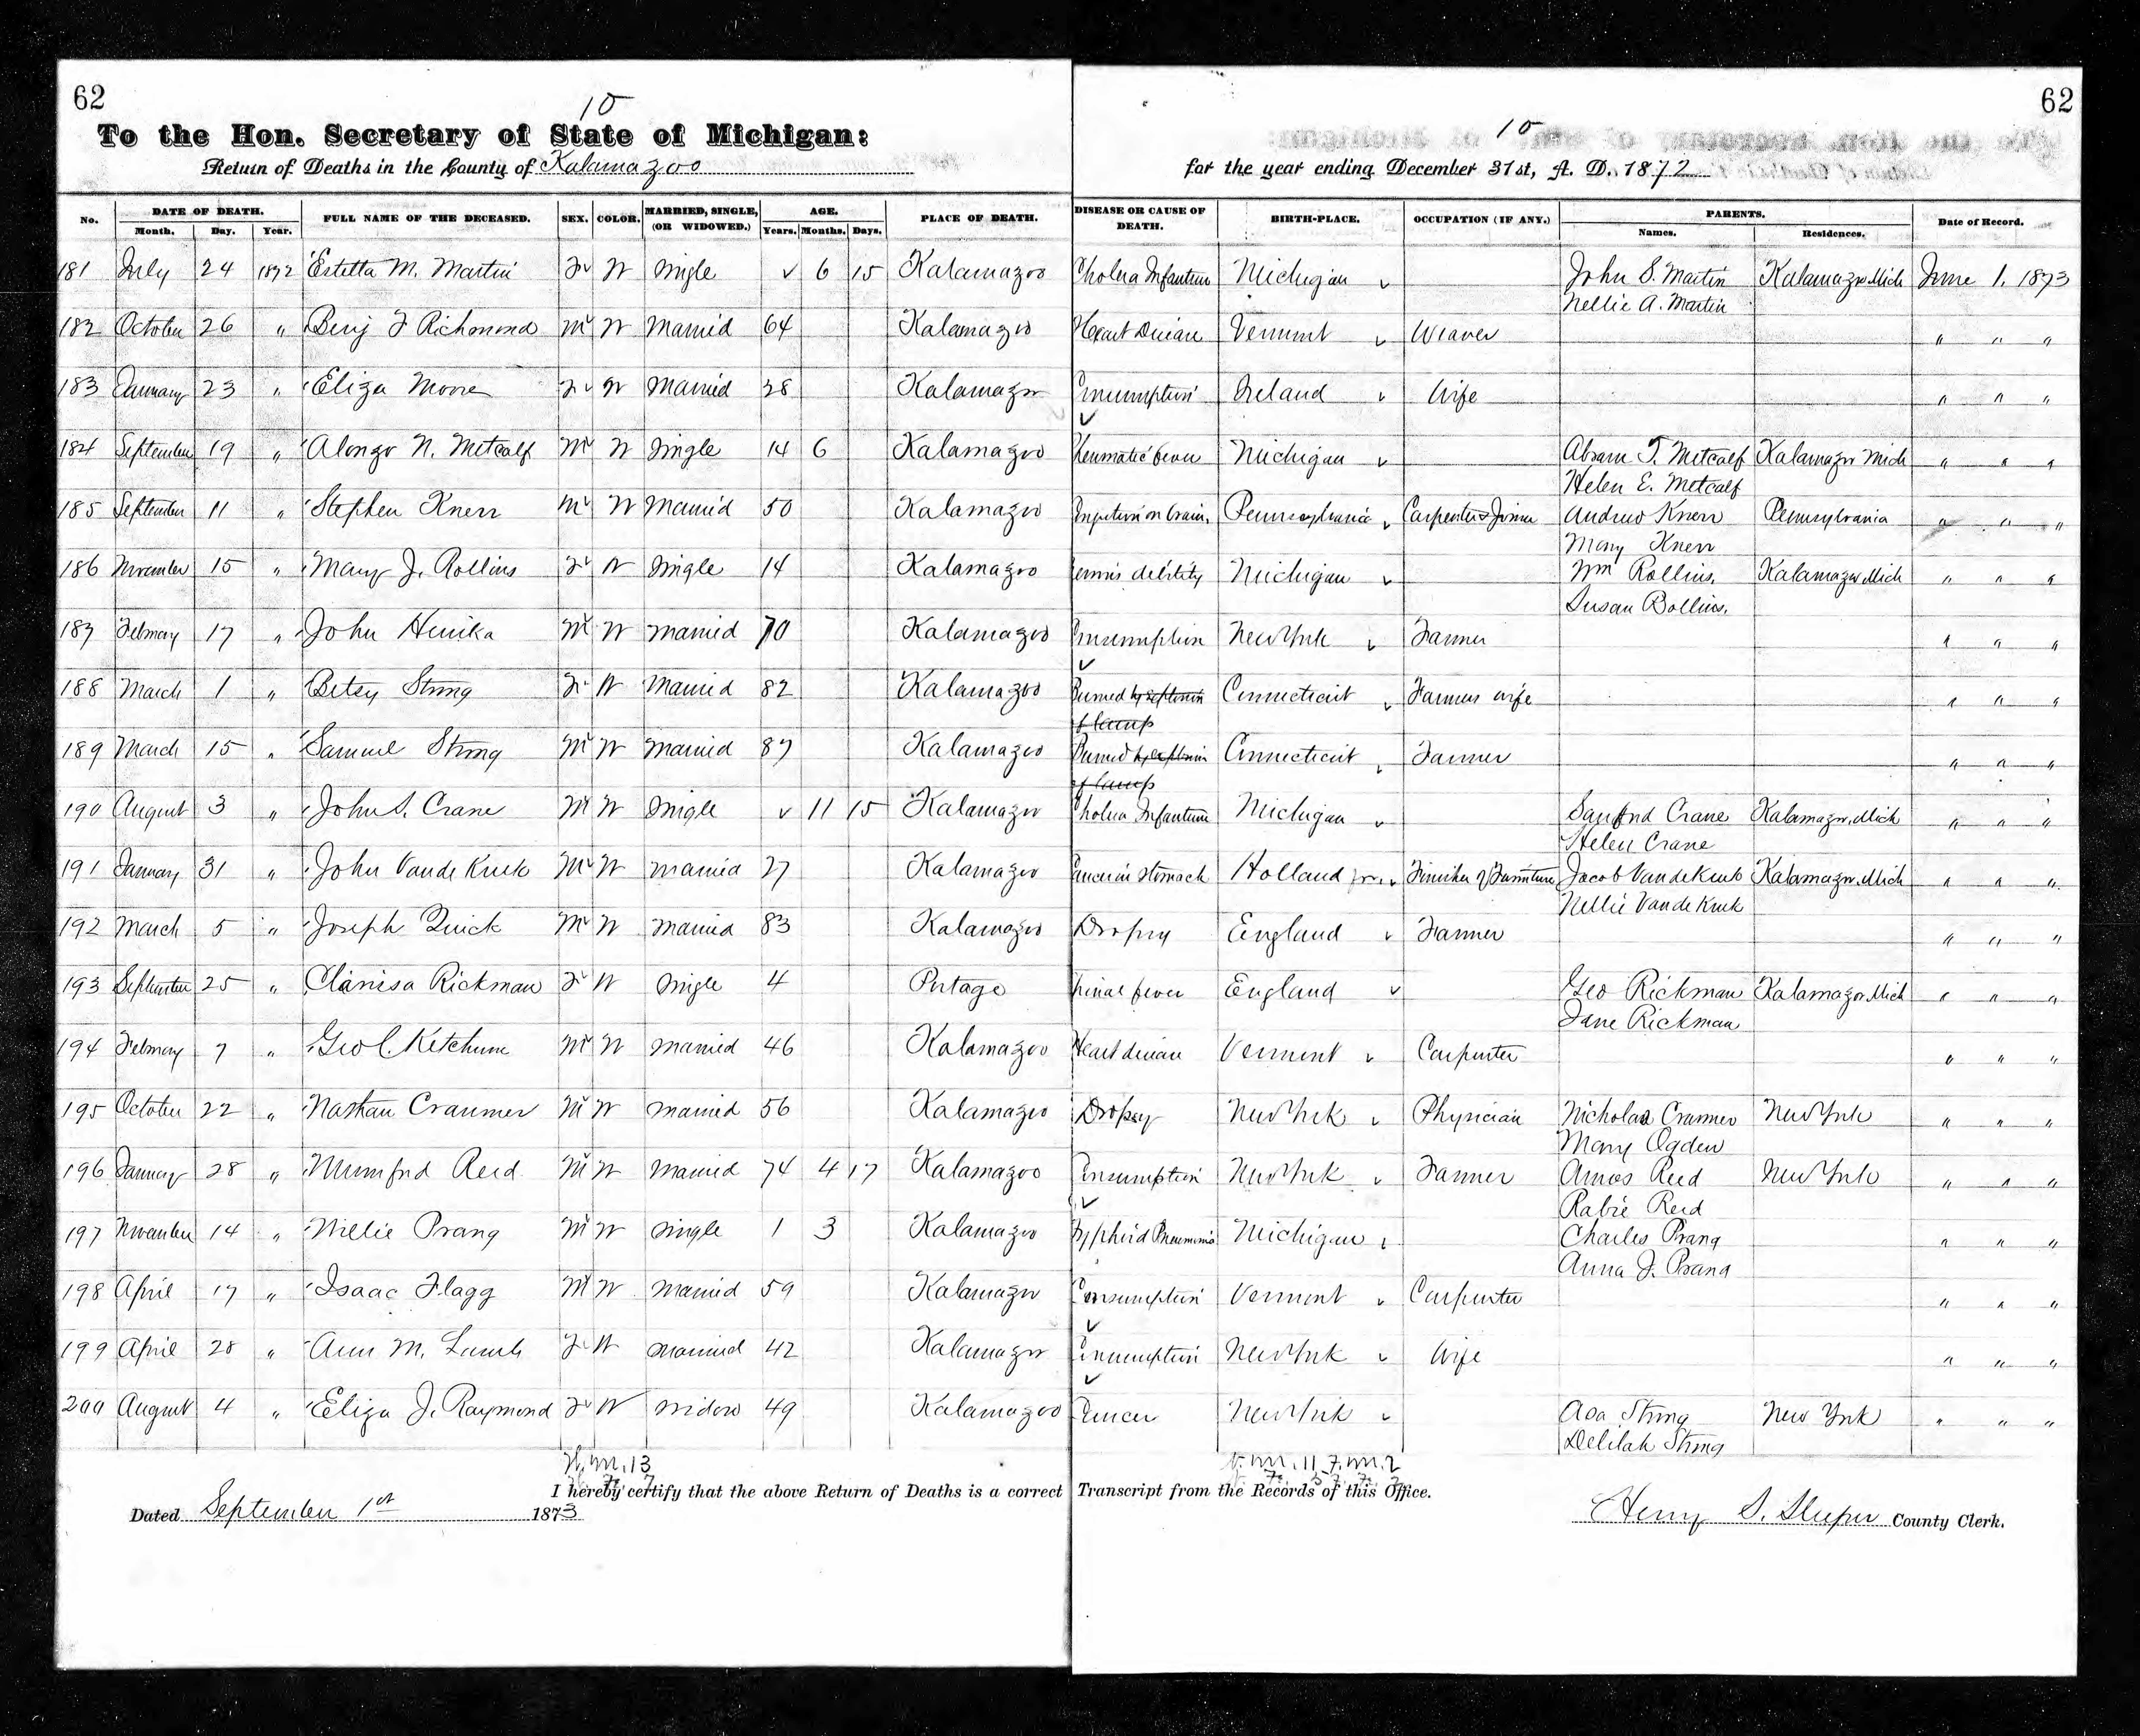 62
10
To the Hon. Secretary of State of Michigan:
Return of Deaths in the County of Kalamazoo
62
10
for the year ending December 31st, A. D. 1872
No. DATE OF DEATH. FULL NAME OF THE DECEASED. SEX. COLOR. MARRIED, SINGLE, (OR WIDOWED.) AGE. PLACE OF DEATH. DISEASE OR CAUSE OF DEATH. BIRTH-PLACE. OCCUPATION (IF ANY.) PARENTS. Date of Record.
Month. Day. Year. Years. Months. Days. Names. Residences.
181 July 24 1872 Estella M. Martin F W Single 6 15 Kalamazoo Cholera Infantum Michigan John S. Martin Kalamazoo Mich June 1, 1873
Nellie A. Martin
182 October 26 " Benj F Richmond M W Married 64 Kalamazoo Heart Disease Vermont Weaver " " "
183 January 23 " Eliza Moore F W Married 28 Kalamazoo Consumption Ireland Wife " " "
184 September 19 " Alonzo N. Metcalf M W Single 14 6 Kalamazoo Rheumatic fever Michigan Abram T. Metcalf Kalamazoo Mich " " "
Helen E. Metcalf
185 September 11 " Stephen Knerr M W Married 50 Kalamazoo Congestion on brain, Pennsylvania Carpenter & Joiner Andrew Knerr Pennsylvania " " "
Mary Knerr
186 November 15 " Mary J. Rollins F W Single 14 Kalamazoo debility Michigan Wm Rollins, Kalamazoo Mich " " "
Susan Rollins,
187 February 17 " John Henika M W Married 70 Kalamazoo Consumption New York Farmer " " "
188 March 1 " Betsy Strong F W Married 82 Kalamazoo Burned by explosion Connecticut Farmers wife " " "
of lamp
189 March 15 " Samuel Strong M W Married 87 Kalamazoo Burned by explosion Connecticut Farmer " " "
of lamp
190 August 3 " John S. Crane M W Single 11 15 Kalamazoo Cholera Infantum Michigan Sanford Crane Kalamazoo, Mich " " "
Helen Crane
191 January 31 " John Vande Kreek M W Married 27 Kalamazoo Cancer in stomach Holland Finisher of Furniture Jacob Vande Kreek Kalamazoo, Mich " " "
Nellie Vande Kreek
192 March 5 " Joseph Quick M W Married 83 Kalamazoo Dropsy England Farmer " " "
193 September 25 " Clarissa Rickman F W Single 4 Portage Spinal fever England Geo Rickman Kalamazoo Mich " " "
Jane Rickman
194 February 7 " Geo C. Ketchum M W Married 46 Kalamazoo Heart disease Vermont Carpenter " " "
195 October 22 " Nathan Cranmer M W Married 56 Kalamazoo Dropsy New York Physician Nicholas Cranmer New York " " "
Mary Ogden
196 January 28 " Mumford Reed M W Married 74 4 17 Kalamazoo Consumption New York Farmer Amos Reed New York " " "
Rabie Reed
197 November 14 " Willie Prang M W Single 1 3 Kalamazoo Typhoid Pneumonia Michigan Charles Prang " " "
Anna J. Prang
198 April 17 " Isaac Flagg M W Married 59 Kalamazoo Consumption Vermont Carpenter " " "
199 April 28 " Ann M. Lamb F W Married 42 Kalamazoo Consumption New York Wife " " "
200 August 4 " Eliza J. Raymond F W Widow 49 Kalamazoo Cancer New York Asa Strong New York " " "
Delilah Strong
W. M. 13
I hereby certify that the above Return of Deaths is a correct Transcript from the Records of this Office.
Dated September 1st 1873
Henry S. Sleeper County Clerk.